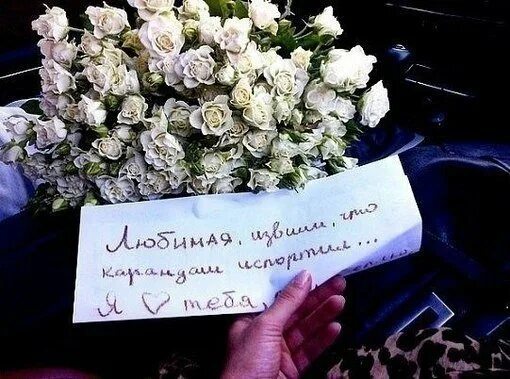 Любимая, извини, что
карандаш испортил...
Я ♡ тебя,